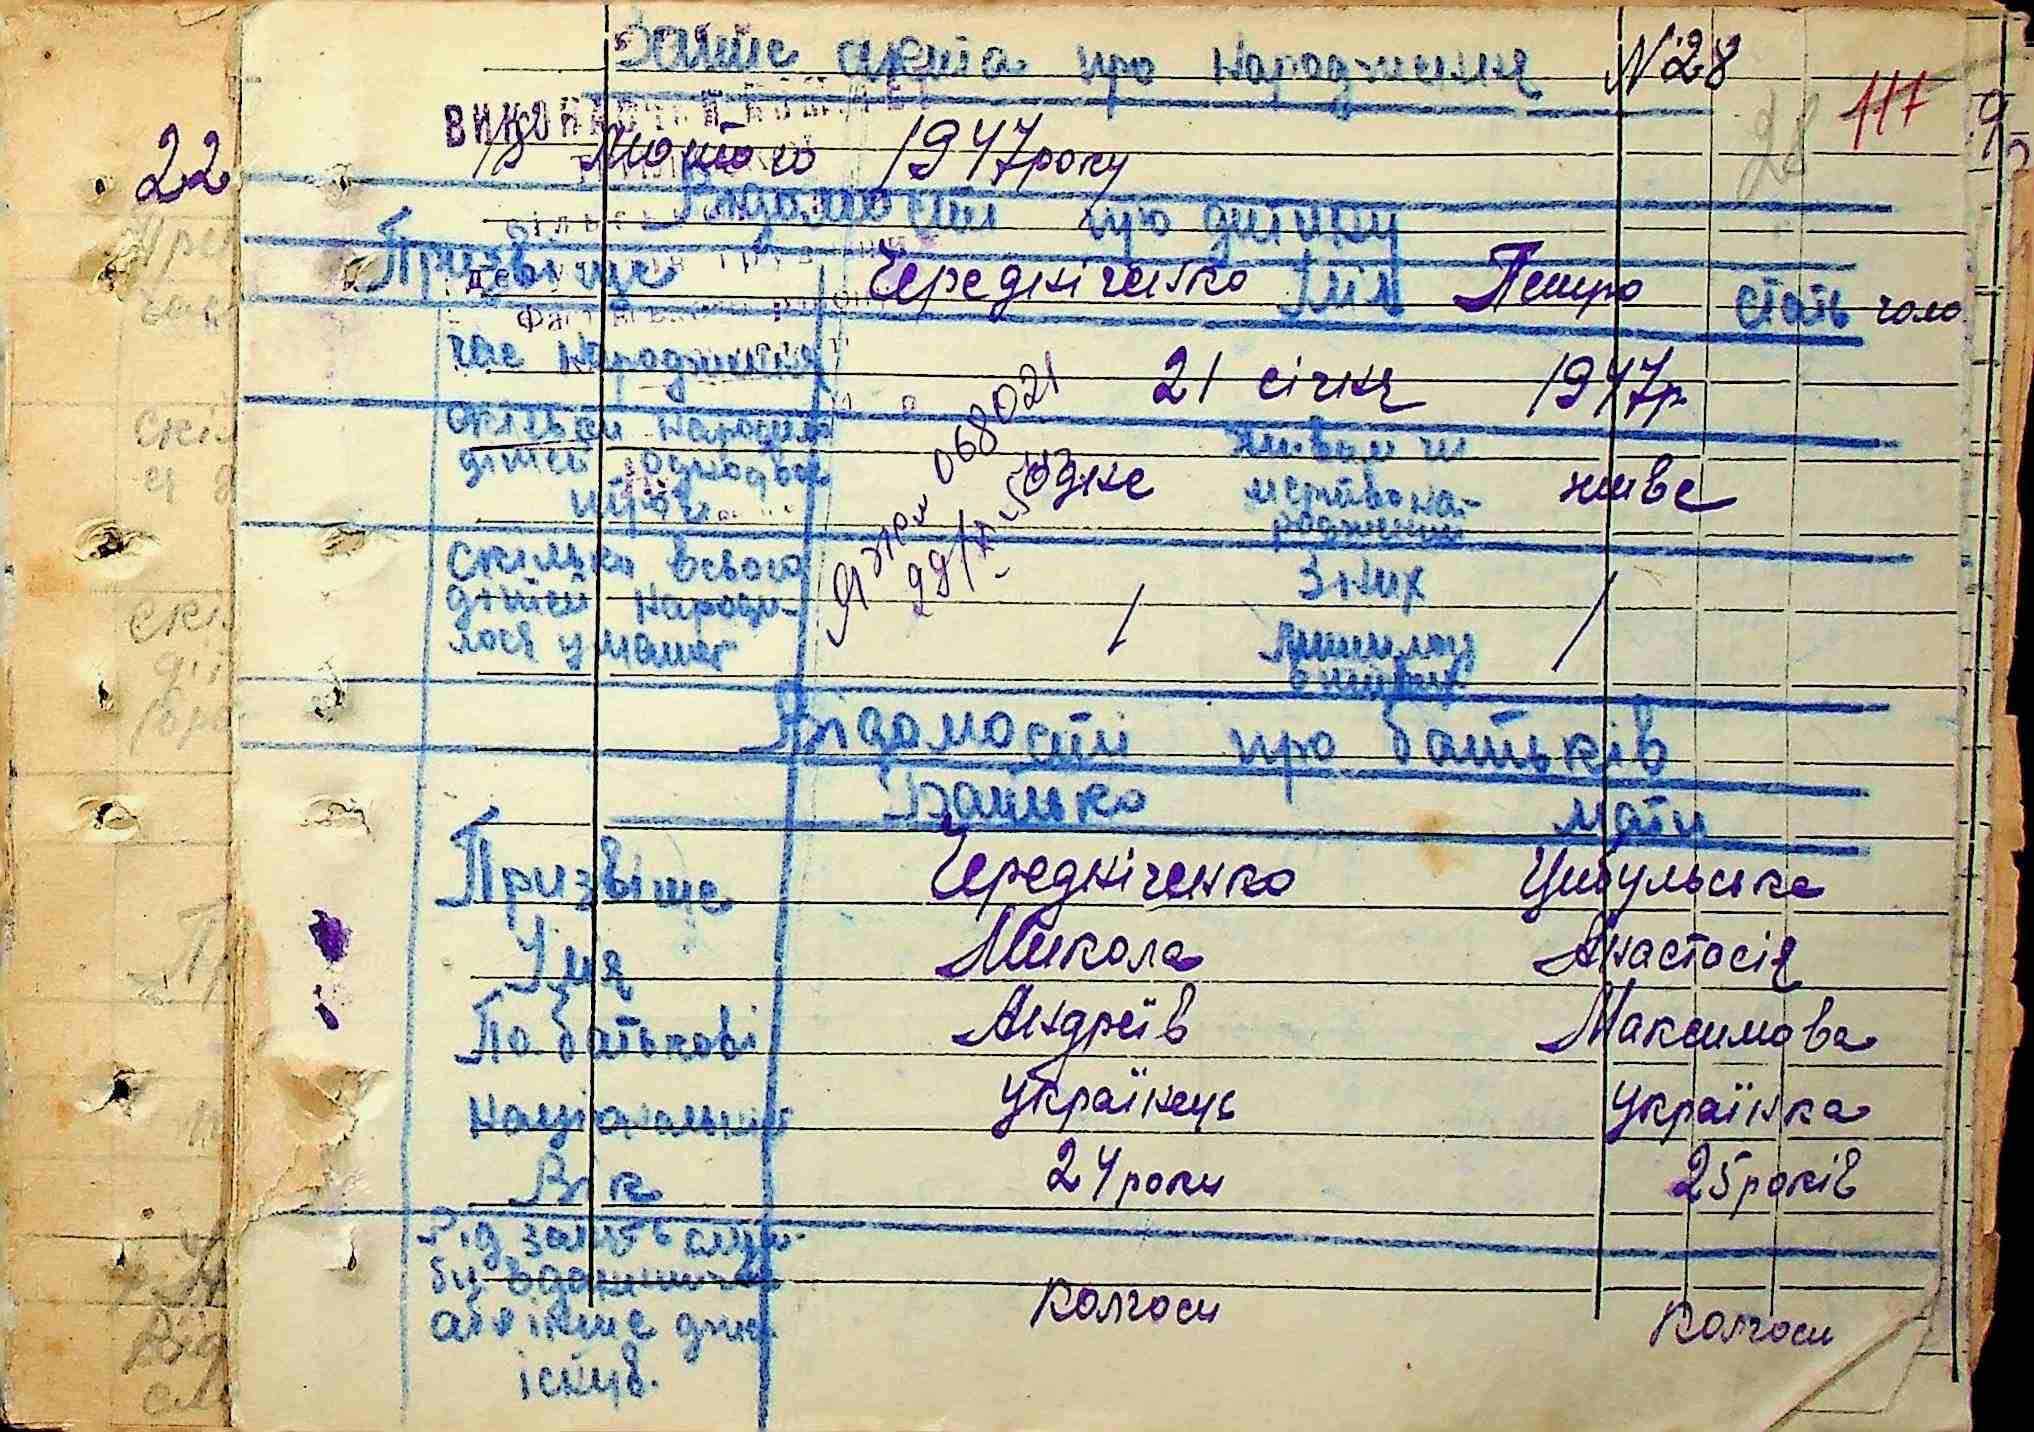 Запис акта про народження №28
117
28
ВИКОНАВЧИЙ КОМІТЕТ
22
18 Лютого 1947 року
Відомости про дитину
Призвище Чередніченко Імя Петро стать чоло
час народження 21 січня 1947р
068021
скільки народило дітей одно двоє троє одне живим чи мертвонароджений живе
скілько всього дітей народилося у матері / з них лишилось в живих /
Відомости про батьків
Батько мати
Призвіще Чередніченко Цибульська
Імя Микола Анастасія
По батькові Андреїв Максимова
Національність Українець Українка
Вік 24 роки 25 років
Рід занять служби
або інше дже
існув.
колгосп колгосп